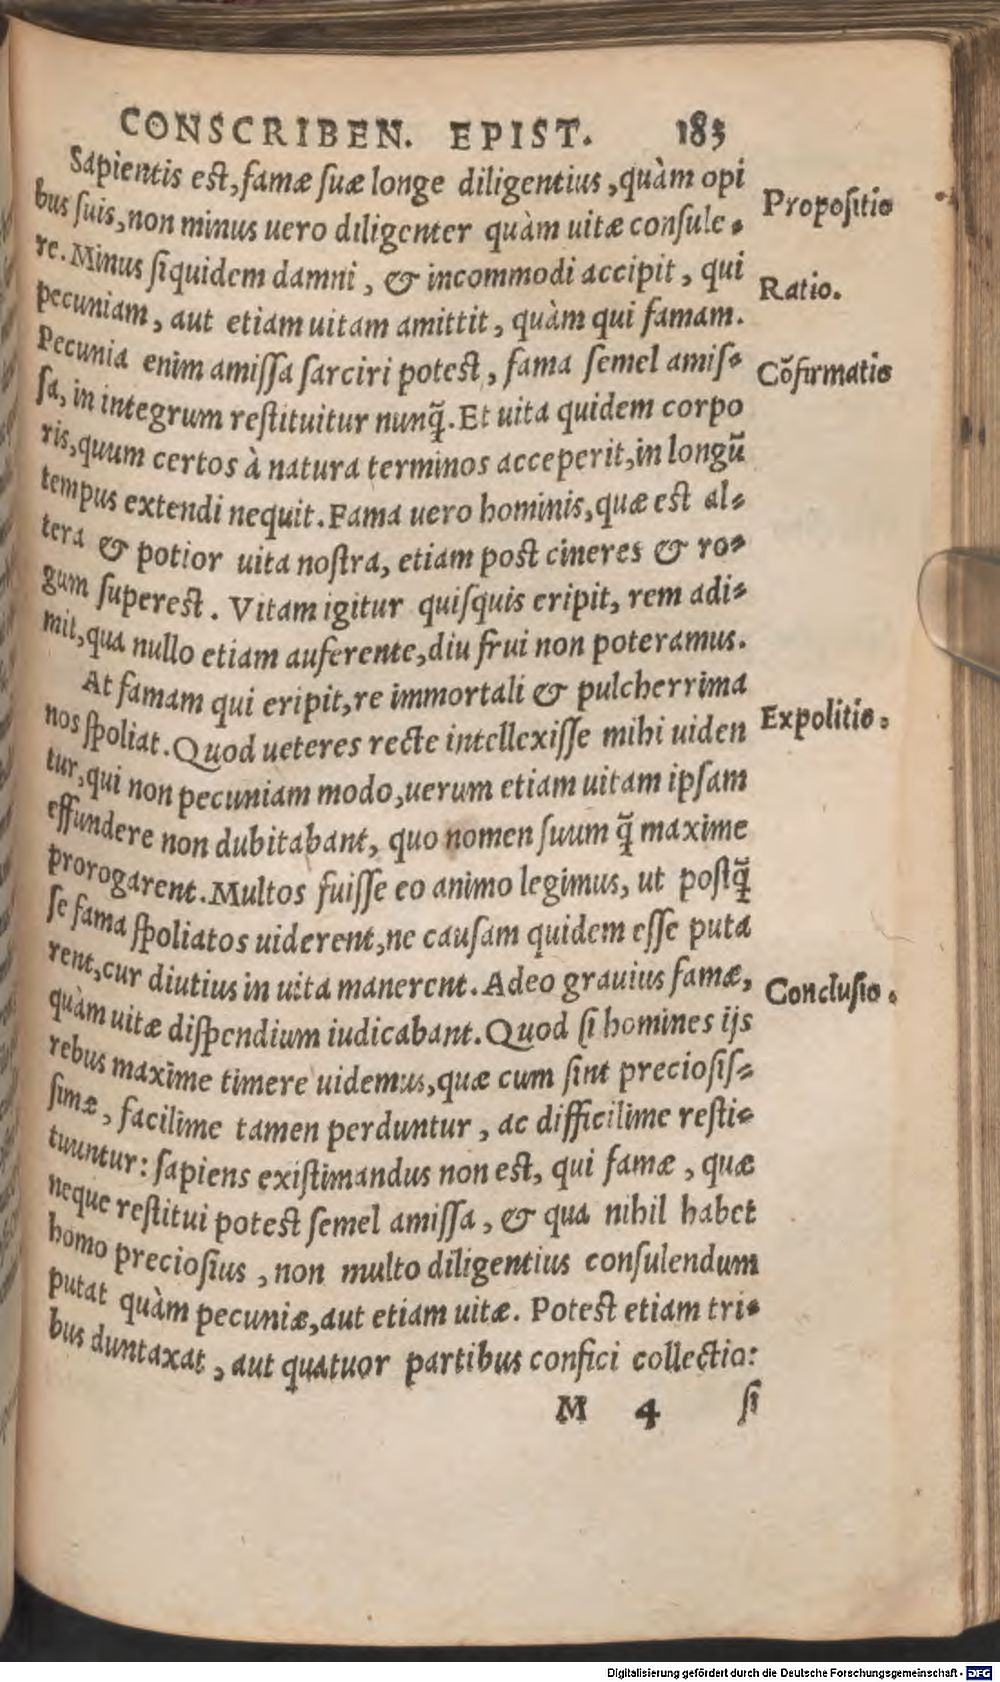 CONSCRIBEN. EPIST. 183
Sapientis est, famæ ſuæ longe diligentius, quàm opi
bus ſuis, non minus uero diligenter quàm uitæ conſule⸗
Propoſitio
re. Minus ſiquidem damni, & incommodi accipit, qui
Ratio.
pecuniam, aut etiam uitam amittit, quàm qui famam.
Pecunia enim amiſſa ſarciri potest, fama ſemel amiſ⸗
Cõfirmatio
ſa, in integrum reſtituitur nunq̃. Et uita quidem corpo
ris, quum certos à natura terminos acceperit, in longũ
tempus extendi nequit. Fama uero hominis, quæ est al⸗
tera & potior uita noſtra, etiam post cineres & ro⸗
gum ſuperest. Vitam igitur quiſquis eripit, rem adi⸗
mit, qua nullo etiam auferente, diu frui non poteramus.
At famam qui eripit, re immortali & pulcherrima
nos ſpoliat. Quod ueteres recte intellexiſſe mihi uiden
Expolitio.
tur, qui non pecuniam modo, uerum etiam uitam ipſam
effundere non dubitabant, quo nomen ſuum q̃ maxime
prorogarent. Multos fuiſſe eo animo legimus, ut poſtq̃
ſe fama ſpoliatos uiderent, ne cauſam quidem eſſe puta
rent, cur diutius in uita manerent. Adeo grauius famæ,
Concluſio.
quàm uitæ diſpendium iudicabant. Quod ſi homines ijs
rebus maxime timere uidemus, quæ cum ſint precioſiſ⸗
ſimæ, facilime tamen perduntur, ac difficilime reſti⸗
tuuntur: ſapiens exiſtimandus non est, qui famæ, quæ
neque reſtitui potest ſemel amiſſa, & qua nihil habet
homo precioſius, non multo diligentius conſulendum
putat quàm pecuniæ, aut etiam uitæ. Potest etiam tri⸗
bus duntaxat, aut quatuor partibus confici collectio:
M 4 ſi
Digitalisierung gefördert durch die Deutsche Forschungsgemeinschaft - DFG